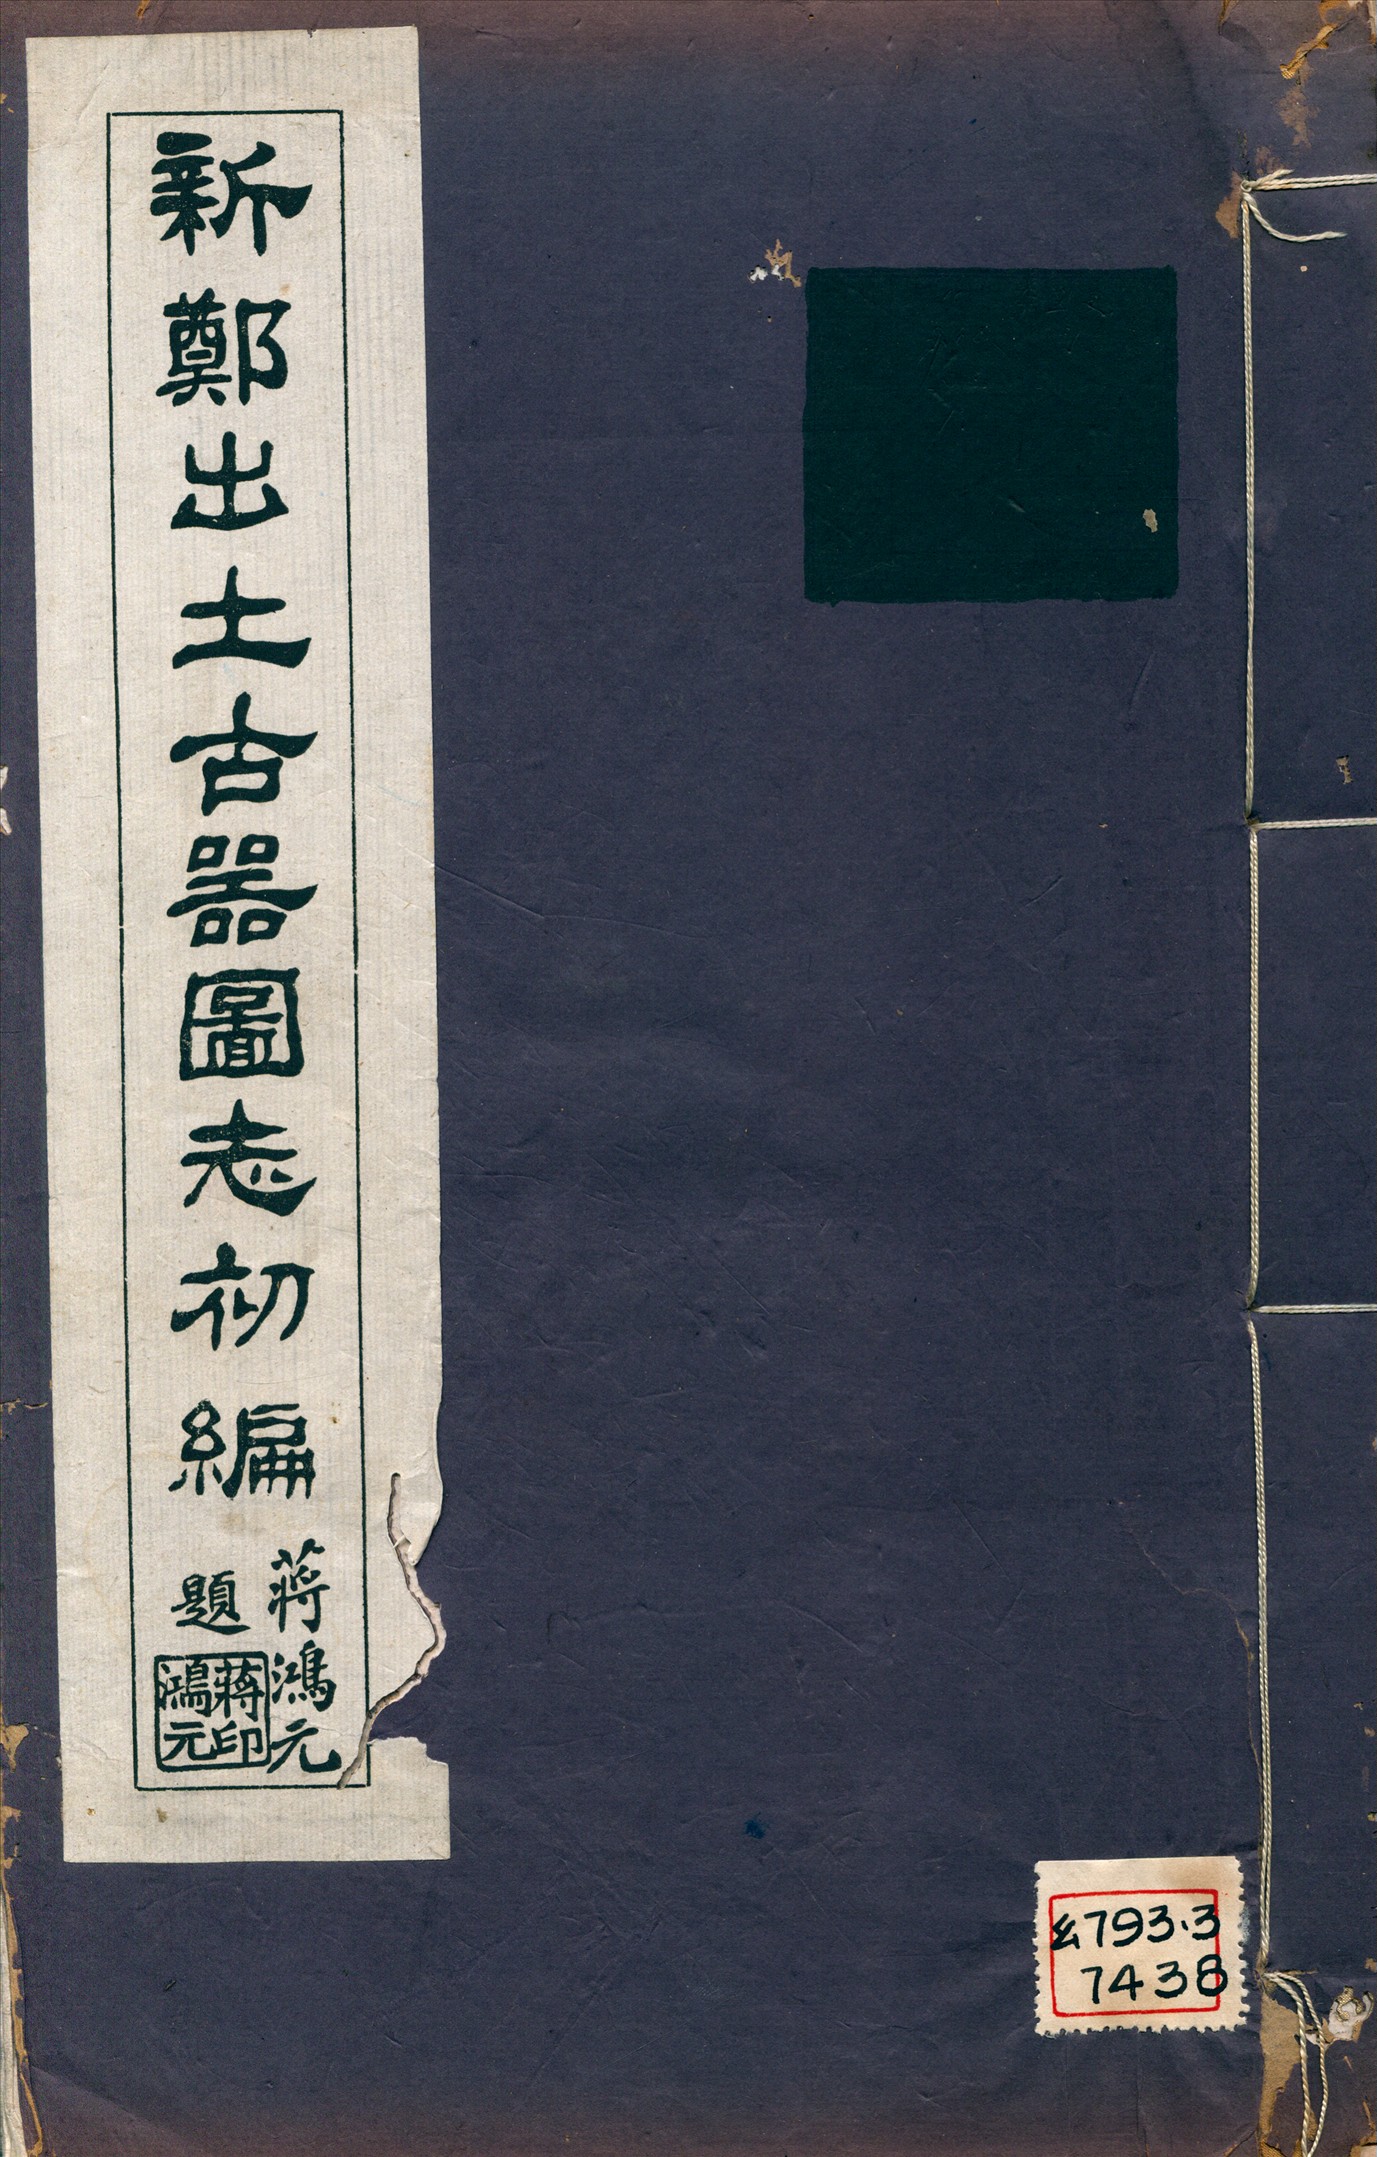 新鄭出土古器圖志初編
蔣鴻元
題
蔣印
鴻元
793.3
7438